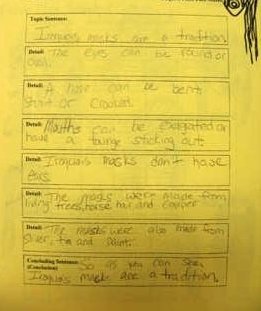 Topic Sentence:
Iroquois masks are a tradition.
Detail: The eyes can be round or
oval.
Detail: A nose can be bent
short or crooked.
Detail: Mouths can be exagerated or
have a tounge sticking out.
Detail: Iroquois masks don't have
ears.
Detail: The masks were made from
living trees, horse hair and copper
Detail: The masks were also made from
silver, tin and paint.
Concluding Sentence: So as you can see,
(Conclusion) Iroquois masks are a tradition.